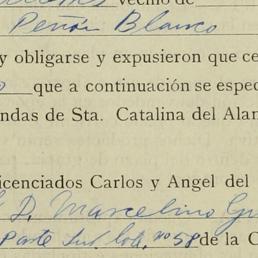 vecino de
Peñón Blanco
y obligarse y expusieron que ce
que a continuación se espec
ndas de Sta. Catalina del Alam
icenciados Carlos y Angel del
D. Marcelino Gu
Parte Sur, Cod. nº 58 de la C